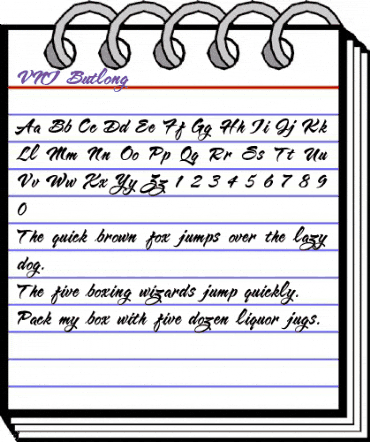 VNI Butlong
Aa Bb Cc Dd Ee Ff Gg Hh Ii Jj Kk
Ll Mm Nn Oo Pp Qq Rr Ss Tt Uu
Vv Ww Xx Yy Zz 1 2 3 4 5 6 7 8 9
0
The quick brown fox jumps over the lazy
dog.
The five boxing wizards jump quickly.
Pack my box with five dozen liquor jugs.